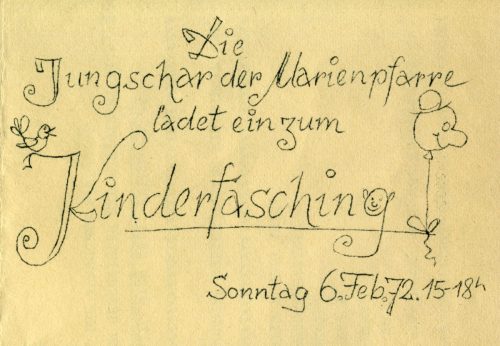 Die
Jungschar der Marienpfarre
ladet ein zum
Kinderfasching
Sonntag 6.Feb.72. 15-18h